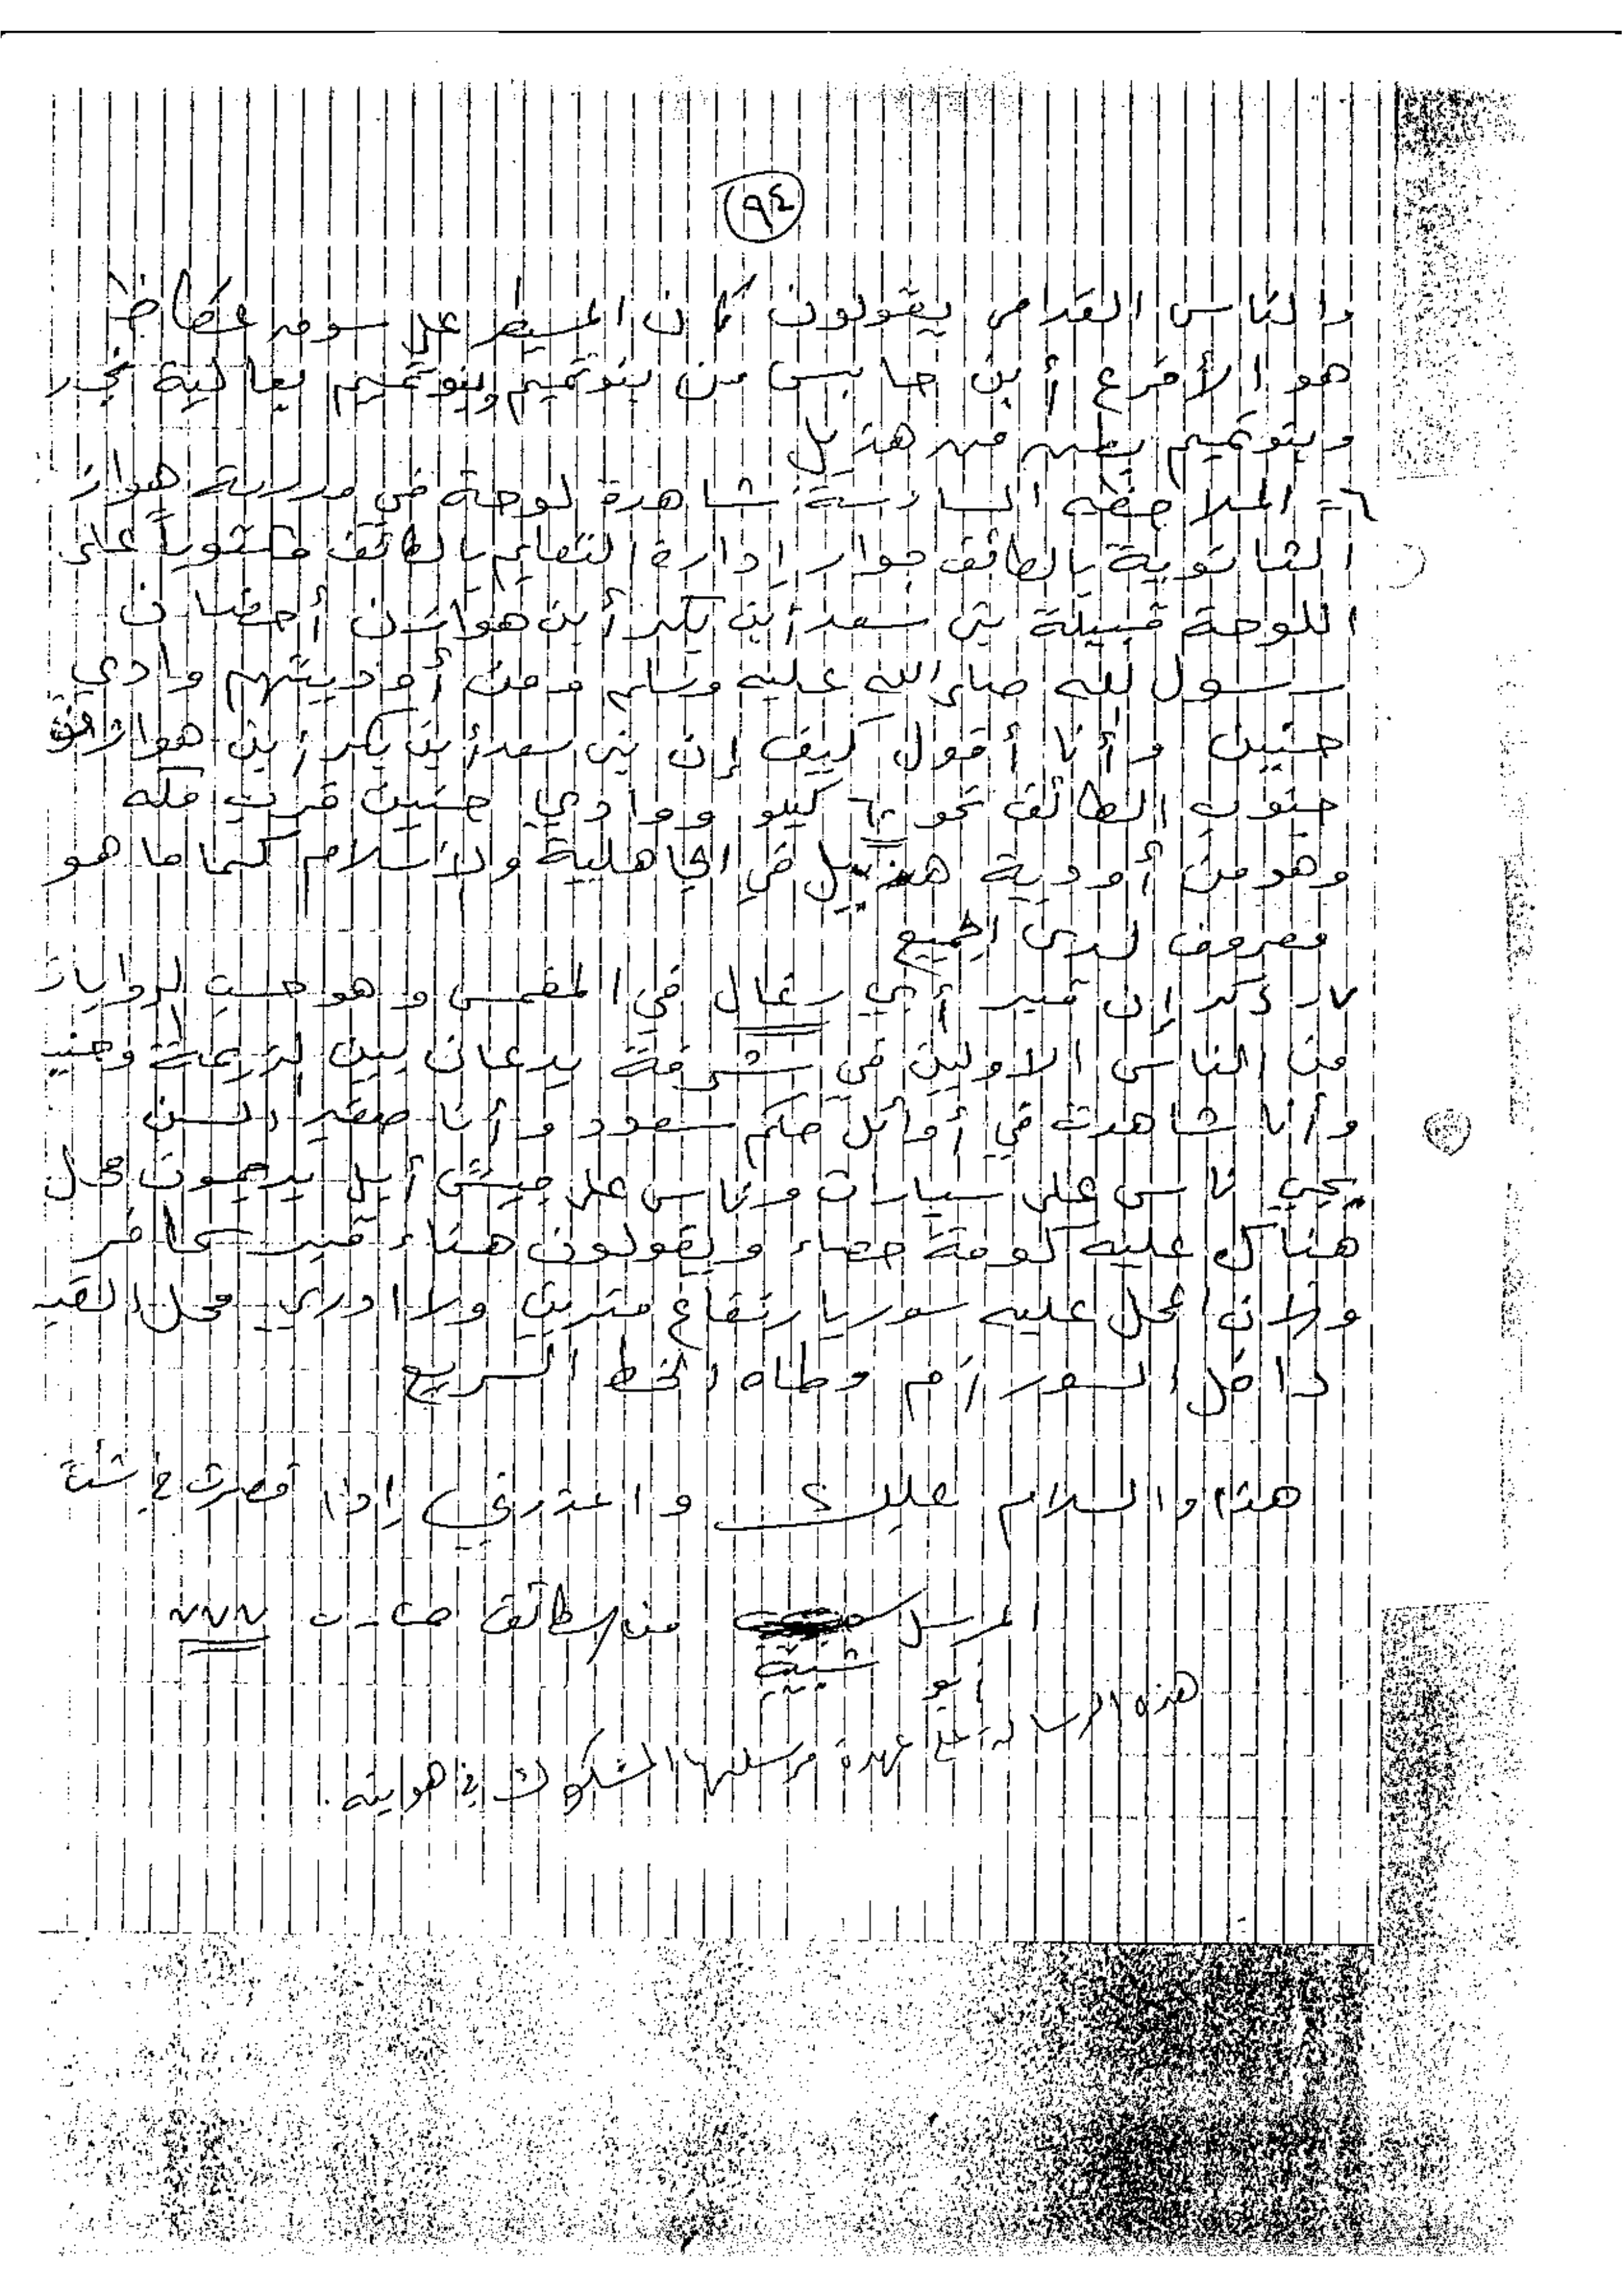 ٩٤
والناس القدامى يقولون كان المسيطر على سوق عكاظ
هو الأقرع أبن حابس من بنو تميم وبنو تميم بعالية نجد
وبنو تميم بطن من هذيل
٦- الملاحظه السادسة شاهدة لوحة في مدرسة هوازن
الثانوية بالطائف جوار إدارة التعليم بالطائف مكتوباً على
اللوحة قبيلة بني سعد أبن بكر أبن هوازن أحضان
رسول الله صلى الله عليه وسلم ومن أوديتهم وادي
حنين وأنا أقول كيف إن بني سعد أبن بكر أبن هوازن
جنوب الطائف نحو ٦٠ كيلو ووادي حنين قرب مكه
وهو من أودية هذيل في الجاهلية والاسلام كما ما هو
معروف لدى الجميع
٧- ذكر إن قبر أبي رغال في المغمس وهو حسب الروايات
من الناس الاولين في شرفة يدعان بين الزرعة وحنين
وأنا شاهدت في أوائل حكم سعود وأنا صغير السن
يجي ناس على سيارات وناس على جيش أبل يرجمون محل
هناك عليه كومة حصاء ويقولون هناء قبر كافر
والان المحل عليه سور بارتفاع مترين ولا ادري محل القبر
داخل السور أم وطاه الخط السريع
هذا والسلام عليك واعذرني إذا قصرت في شئ
المرسل من الطائف ص.ب ٧٧٧
أبو شيبة
هذه الرسالة على عهدة مرسلها المشكوك في هويته.